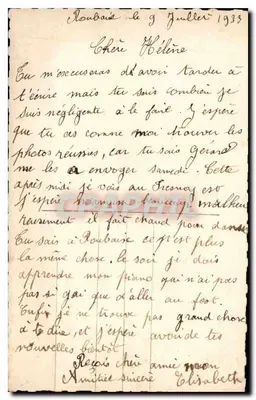 Roubaix le 9 Juillet 1933
Chère Hélène
Tu m'excuseras d'avoir tarder à
t'écrire mais tu sais combien je
suis négligente à le fait. J'espère
que tu as comme moi trouver les
photos réunies, car tu sais Gérard
me les a envoyer samedi. Cette
après midi je vais au Fresnoy est
j'espère m'amuser beaucoup malheu
reusement il fait chaud pour danser
Tu sais à Roubaix ce n'est plus
la même chose, le soir je dois
apprendre mon piano qui n'ai pas
pas si gai que d'aller au foot.
Enfin je ne trouve pas grand chose
à te dire, et j'espère avoir de tes
nouvelles bientôt
Reçois chère amie mon
Amitié sincère Elisabeth